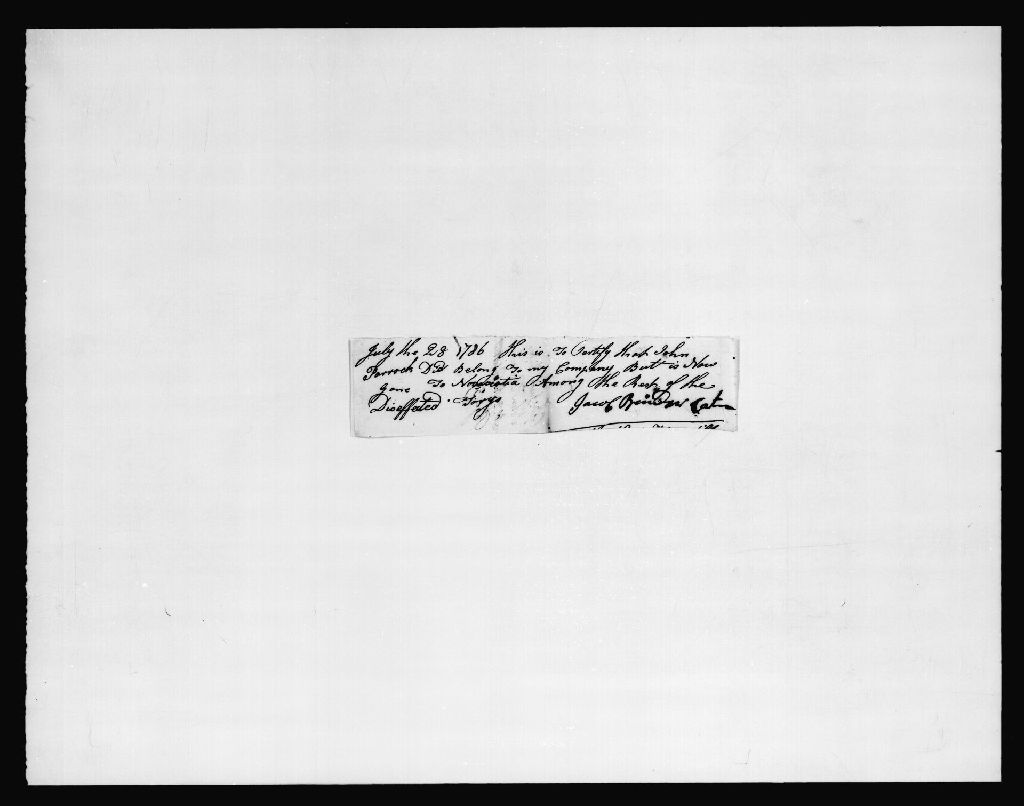 July the 28 1786 this is to Certify that John
Parrock Did Belong To my Company But is Now
gone To Novascotia Among the Rest of the
Disaffected Torys
Jacob